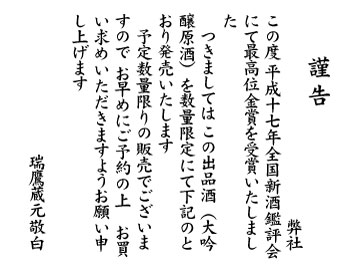 謹告
弊社
この度平成十七年全国新酒鑑評会
にて最高位金賞を受賞いたしまし
た
つきましては この出品酒（大吟
醸原酒）を数量限定にて下記のと
おり発売いたします
予定数量限りの販売でございま
すので お早めにご予約の上 お買
い求めいただきますようお願い申
し上げます
瑞鷹蔵元敬白